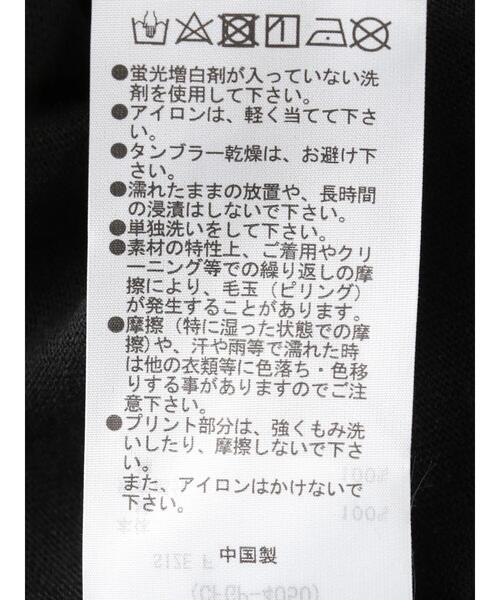 ●蛍光増白剤が入っていない洗
剤を使用して下さい。
●アイロンは、軽く当てて下さ
い。
●タンブラー乾燥は、お避け下
さい。
●濡れたままの放置や、長時間
の浸漬はしないで下さい。
●単独洗いをして下さい。
●素材の特性上、ご着用やクリ
ーニング等での繰り返しの摩
擦により、毛玉（ピリング）
が発生することがあります。
●摩擦（特に湿った状態での摩
擦)や、汗や雨等で濡れた時
は他の衣類等に色落ち・色移
りする事がありますのでご注
意下さい。
●プリント部分は、強くもみ洗
いしたり、摩擦しないで下さ
い。
また、アイロンはかけないで
下さい。
100%
本体
100%
SIZE F
中国製
(CFGP-4050)